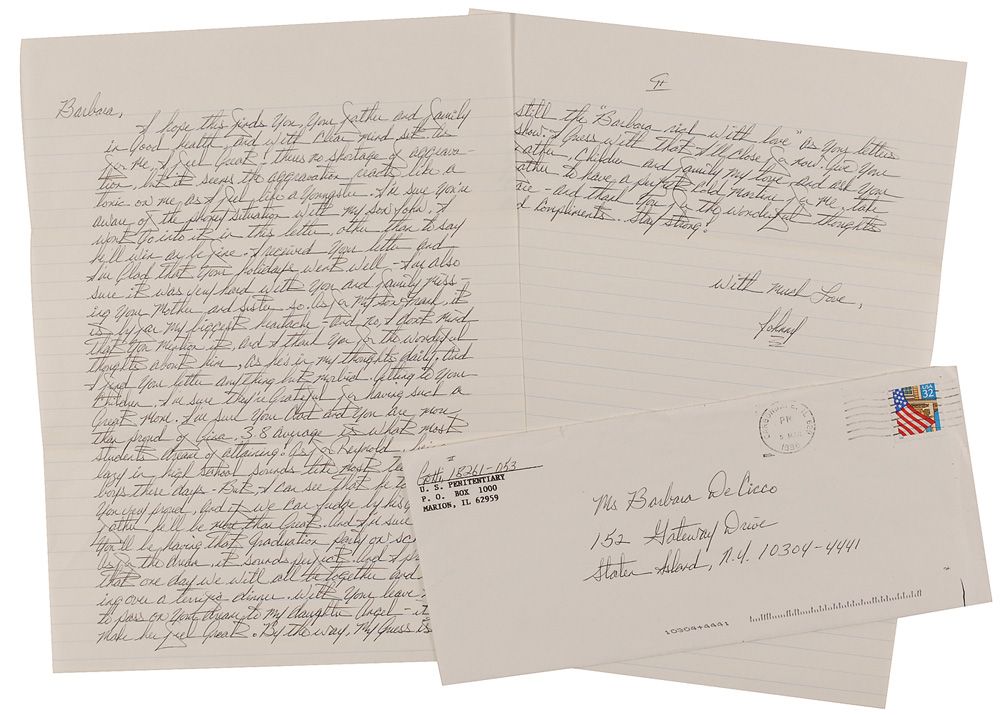 Barbara,
I hope this finds You, Your Father and Family
in Good health, and with clear mind set. As
for me, I feel Great! theres no shortage of aggrava-
tion, but it seems the aggravation reacts like a
tonic on me, as I feel like a Youngster. I'm sure You're
aware of the phony situation with my son John. I
wont Go into it in this letter, other than to say
he'll win an be fine. I received Your letter and
I'm Glad that Your holidays went well - I'm also
sure it was very hard with You and family miss-
ing Your Mother and Sister so. As for my son Frank, it
is by far my biggest headache - and no, I dont mind
that You mention it, and I thank You for the wonderful
thoughts about him, As he's in my thoughts daily. And
I find Your letter anything but morbid. Getting to Your
Children. I'm sure they're Grateful for having such a
Great Mom. I'm sure Your Dad and You are more
than proud of Lisa. 3.8 average is what most
students dream of attaining. As for Reynold,
lazy in high school sounds like most
boys these days - But, I can see that he
You very proud, And if we can judge by his G
Father he'll be more than Great. And I'm sure
You'll be having that Graduation party on
As for the dream, it sounds perfect. And I
that one day we will all be together and
ing over a terrific dinner. With Your leave
to pass on Your dream to my daughter Angel - it
make her feel Great. By the way, My Guess is
GH
still the "Barbara sign with love" as Your letters
show. I Guess with that I'll close for now. Give Your
Father, Children and family my love, and ask Your
Father to have a perfect cold Martini for me, take
care - and thank You for the wonderful thoughts
d Compliments. Stay strong!
With much Love,
Johnny
II
Gotti, 18261-053
U. S. PENITENTIARY
P. O. BOX 1000
MARION, IL 62959
PM
1996
USA
32
Ms Barbara DeCicco
152 Gateway Drive
Staten Island, N.Y. 10304-4441
10304+4441